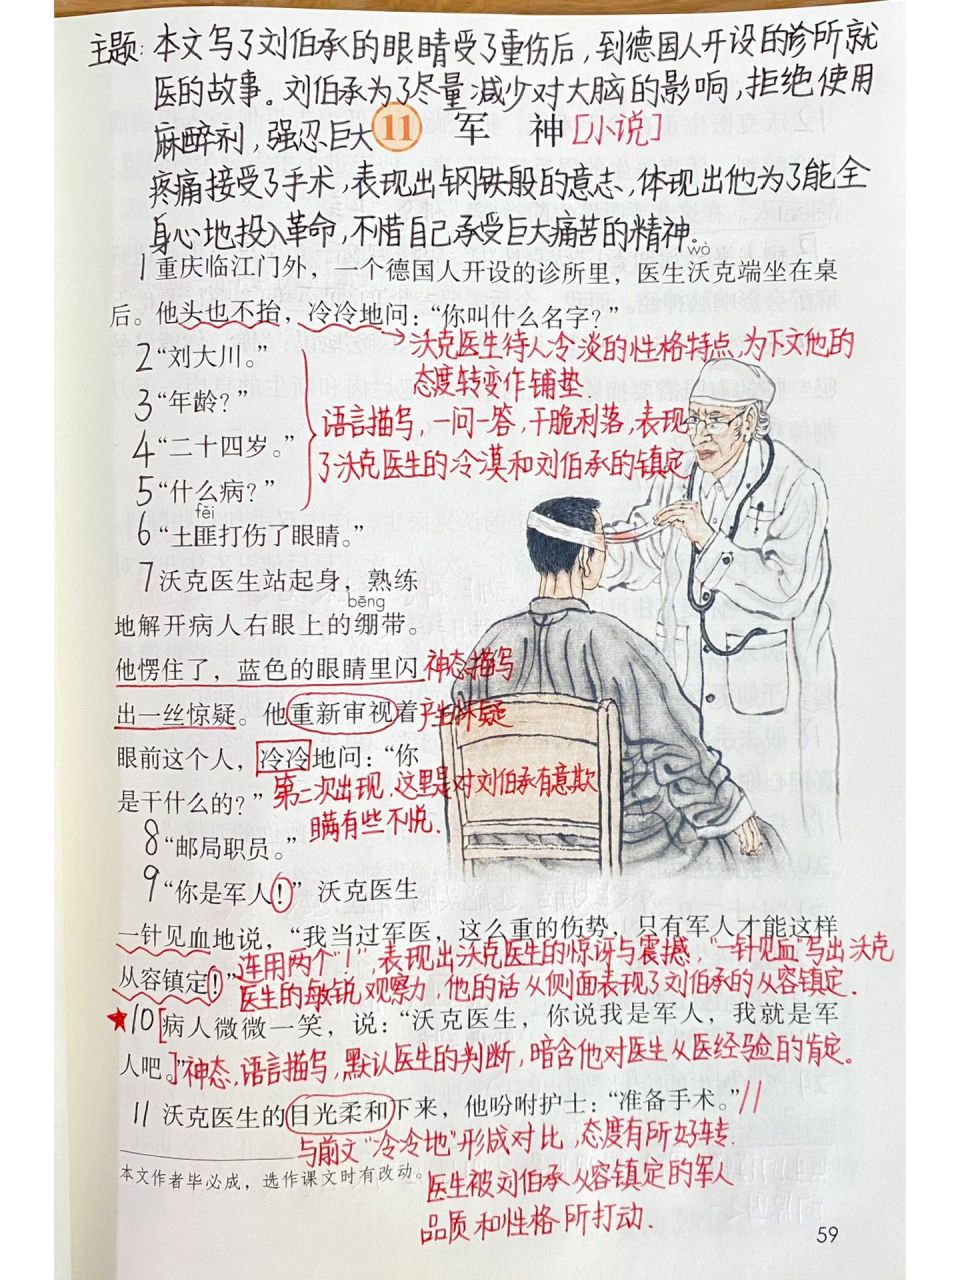 主题:本文写了刘伯承的眼睛受了重伤后,到德国人开设的诊所就
医的故事。刘伯承为了尽量减少对大脑的影响,拒绝使用
麻醉剂,强忍巨大
11 军 神[小说]
疼痛接受了手术,表现出钢铁般的意志,体现出他为了能全
身心地投入革命,不惜自己承受巨大痛苦的精神。
wò
1重庆临江门外,一个德国人开设的诊所里,医生沃克端坐在桌
后。他头也不抬,冷冷地问:“你叫什么名字?”
沃克医生待人冷淡的性格特点,为下文他的
态度转变作铺垫.
2“刘大川。”
3“年龄?”
语言描写,一问一答,干脆利落,表现
4“二十四岁。”
了沃克医生的冷漠和刘伯承的镇定
5“什么病?”
fěi
6“土匪打伤了眼睛。”
7沃克医生站起身,熟练
bēng
地解开病人右眼上的绷带。
他愣住了,蓝色的眼睛里闪 神态描写
出一丝惊疑。他重新审视着 产生怀疑
眼前这个人,冷冷地问:“你
是干什么的?” 第二次出现.这里是对刘伯承有意欺
瞒有些不悦.
8“邮局职员。”
9“你是军人!”沃克医生
一针见血地说,“我当过军医,这么重的伤势,只有军人才能这样
从容镇定!” 连用两个“!”,表现出沃克医生的惊讶与震撼,“一针见血”写出沃克
医生的敏锐观察力,他的话从侧面表现了刘伯承的从容镇定.
★10[病人微微一笑,说:“沃克医生,你说我是军人,我就是军
人吧。”]神态,语言描写,默认医生的判断,暗含他对医生从医经验的肯定。
11 沃克医生的目光柔和下来,他吩咐护士:“准备手术。”//
与前文“冷冷地”形成对比,态度有所好转.
本文作者毕必成,选作课文时有改动。
医生被刘伯承从容镇定的军人
品质和性格所打动.
59